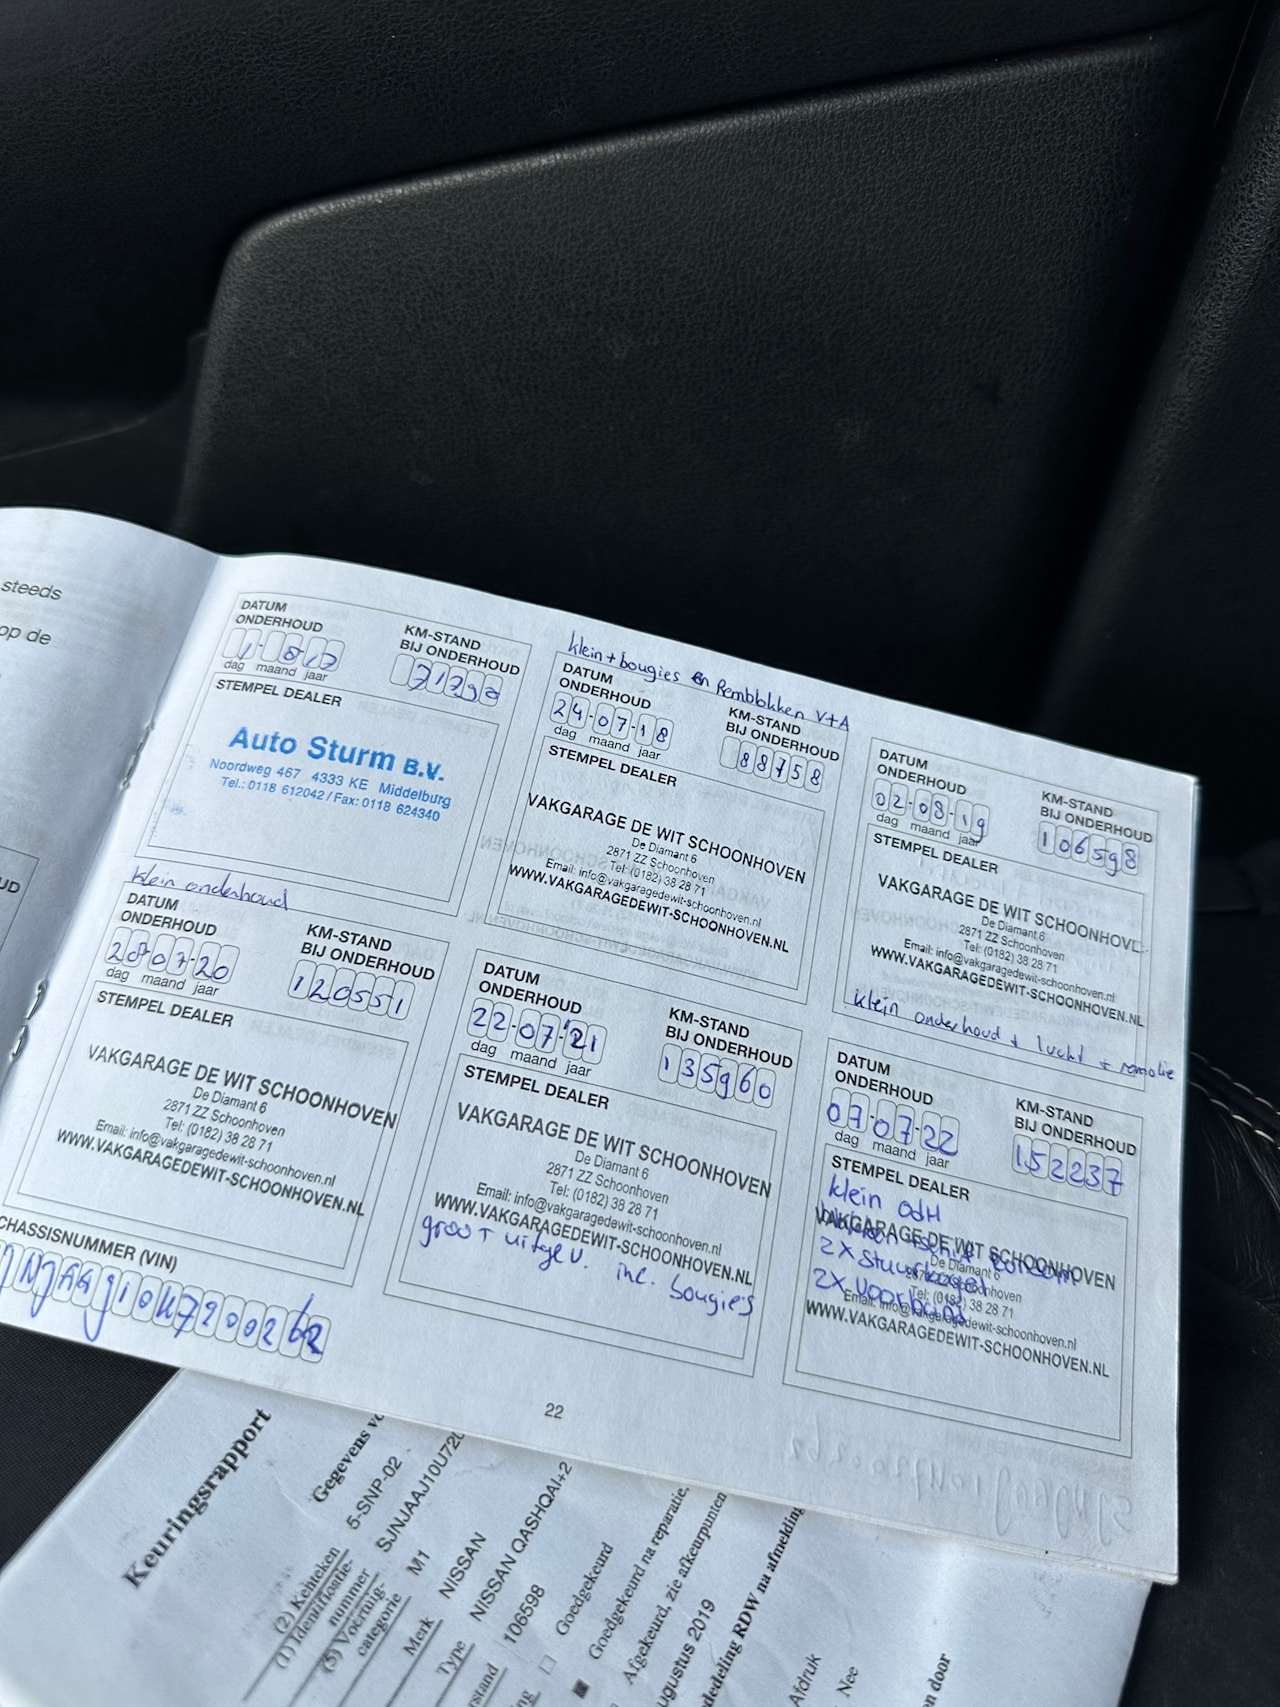 steeds
op de
UD
DATUM
ONDERHOUD
KM-STAND
BIJ ONDERHOUD
dag maand jaar
STEMPEL DEALER
Auto Sturm B.V.
Noordweg 467 4333 KE Middelburg
Tel.: 0118 612042 / Fax: 0118 624340
klein + bougies en Remblokken V+A
DATUM
ONDERHOUD
24-07-18
dag maand jaar
KM-STAND
BIJ ONDERHOUD
88758
STEMPEL DEALER
VAKGARAGE DE WIT SCHOONHOVEN
De Diamant 6
2871 ZZ Schoonhoven
Tel: (0182) 38 28 71
Email: info@vakgaragedewit-schoonhoven.nl
WWW.VAKGARAGEDEWIT-SCHOONHOVEN.NL
DATUM
ONDERHOUD
02-08-19
dag maand jaar
KM-STAND
BIJ ONDERHOUD
106598
STEMPEL DEALER
VAKGARAGE DE WIT SCHOONHOVE
De Diamant 6
2871 ZZ Schoonhoven
Tel: (0182) 38 28 71
Email: info@vakgaragedewit-schoonhoven.nl
WWW.VAKGARAGEDEWIT-SCHOONHOVEN.NL
klein onderhoud + lucht + remolie
klein onderhoud
DATUM
ONDERHOUD
28-07-20
dag maand jaar
KM-STAND
BIJ ONDERHOUD
120551
STEMPEL DEALER
VAKGARAGE DE WIT SCHOONHOVEN
De Diamant 6
2871 ZZ Schoonhoven
Tel: (0182) 38 28 71
Email: info@vakgaragedewit-schoonhoven.nl
WWW.VAKGARAGEDEWIT-SCHOONHOVEN.NL
DATUM
ONDERHOUD
22-07-21
dag maand jaar
KM-STAND
BIJ ONDERHOUD
135960
STEMPEL DEALER
VAKGARAGE DE WIT SCHOONHOVEN
De Diamant 6
2871 ZZ Schoonhoven
Tel: (0182) 38 28 71
Email: info@vakgaragedewit-schoonhoven.nl
WWW.VAKGARAGEDEWIT-SCHOONHOVEN.NL
groot uitgev. inc. bougies
DATUM
ONDERHOUD
07-07-22
dag maand jaar
KM-STAND
BIJ ONDERHOUD
152237
STEMPEL DEALER
klein odH
VAKGARAGE DE WIT SCHOONHOVEN
De Diamant 6
2X Stuurkogel
Tel: (0182) 38 28 71
2X Voorband
Email: info@vakgaragedewit-schoonhoven.nl
WWW.VAKGARAGEDEWIT-SCHOONHOVEN.NL
CHASSISNUMMER (VIN)
22
Keuringsrapport
Gegevens vo
(2) Kenteken 5-SNP-02
(1) Identificatie-
nummer SJNJAAJ10U720
(5) Voertuig-
categorie M1
Merk NISSAN
Type NISSAN QASHQAI+2
rstand 106598
ng Goedgekeurd
Goedgekeurd na reparatie,
Afgekeurd, zie afkeurpunten
ugustus 2019
dedeling RDW na afmelding
Afdruk
Nee
en door